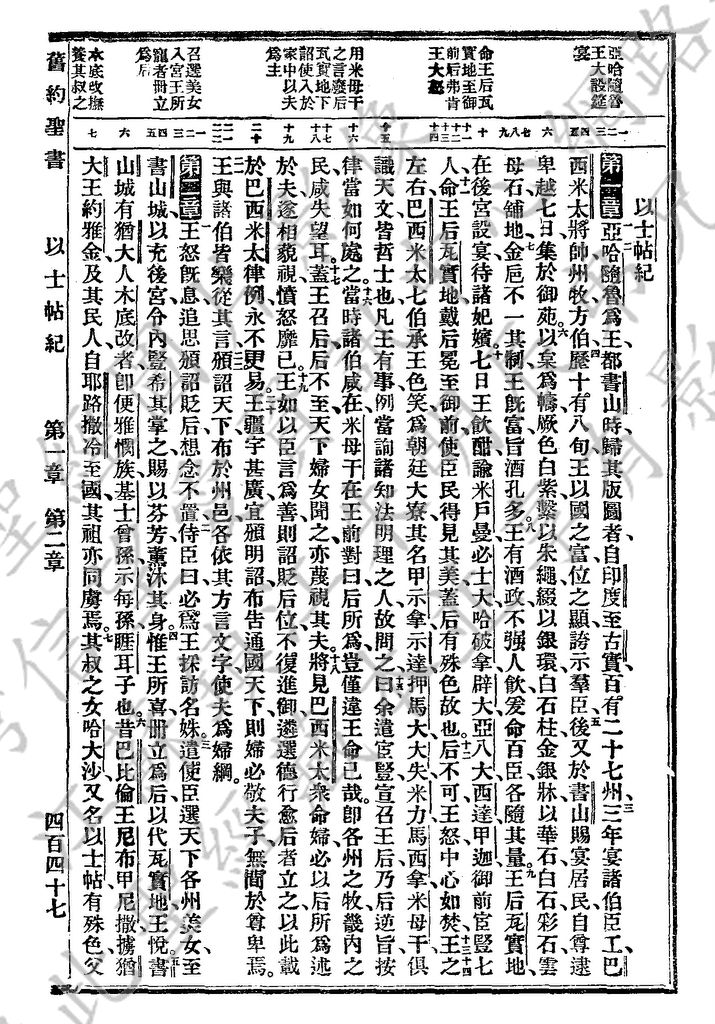 以士帖紀
第一章亞哈隨魯爲王都書山時歸其版圖者自印度至古實百有二十七州三年宴諸伯臣工巴
西米太將帥州牧方伯歷十有八旬王以國之富位之顯誇示羣臣後又於書山賜宴居民自尊逮
卑越七日集於御苑以枲爲幬厥色白紫繫以朱繩綴以銀環白石柱金銀牀以華石白石彩石雲
母石舖地金巵不一其制王旣富旨酒孔多王有酒政不强人飮爰命百臣各隨其量王后瓦實地
在後宮設宴待諸妃嬪七日王飮酣諭米戶曼必士大哈破拿辟大亞八大西達甲迦御前宦豎七
人命王后瓦實地戴后冕至御前使臣民得見其美蓋后有殊色故也后不可王怒中心如焚王之
左右巴西米太七伯承王色笑爲朝廷大寮其名甲示拿示達押馬大大失米力馬西拿米母干俱
識天文皆哲士也凡王有事例當詢諸知法明理之人故問之曰余遣宦豎宣召王后乃后逆旨按
律當如何處之當時諸伯咸在米母干在王前對曰后所爲豈僅違王命已哉卽各州之牧畿內之
民咸失望耳蓋王召后后不至天下婦女聞之亦蔑視其夫將見巴西米太衆命婦必以后所爲述
於夫遂相藐視憤怒靡已王如以臣言爲善則詔貶后位不復進御遴選德行愈后者立之以此載
於巴西米太律例永不更易王疆宇甚廣宜頒明詔布告通國天下則婦必敬夫子無間於尊卑焉
王與諸伯皆樂從其言頒詔天下布於州邑各依其方言文字使夫爲婦綱
第二章王怒旣息追思頒詔貶后想念不置侍臣曰必爲王採訪名姝遣使臣選天下各州美女至
書山城以充後宮令內豎希其掌之賜以芬芳薰沐其身惟王所喜冊立爲后以代瓦實地王悅書
山城有猶大人木底改者卽便雅憫族基士曾孫示每孫睚耳子也昔巴比倫王尼布甲尼撒擄猶
大王約雅金及其民人自耶路撒冷至國其祖亦同虜焉其叔之女哈大沙又名以士帖有殊色父
亞哈隨魯
王大設筵
宴
命王后瓦
實地至御
前后弗肯
王大怒
用米母干
之言廢后
瓦實地下
詔使入於
家中以夫
爲主
召選美女
入宮王所
寵者冊立
爲后
木底改撫
養其叔之
舊約聖書 以士帖紀 第一章 第二章 四百四十七